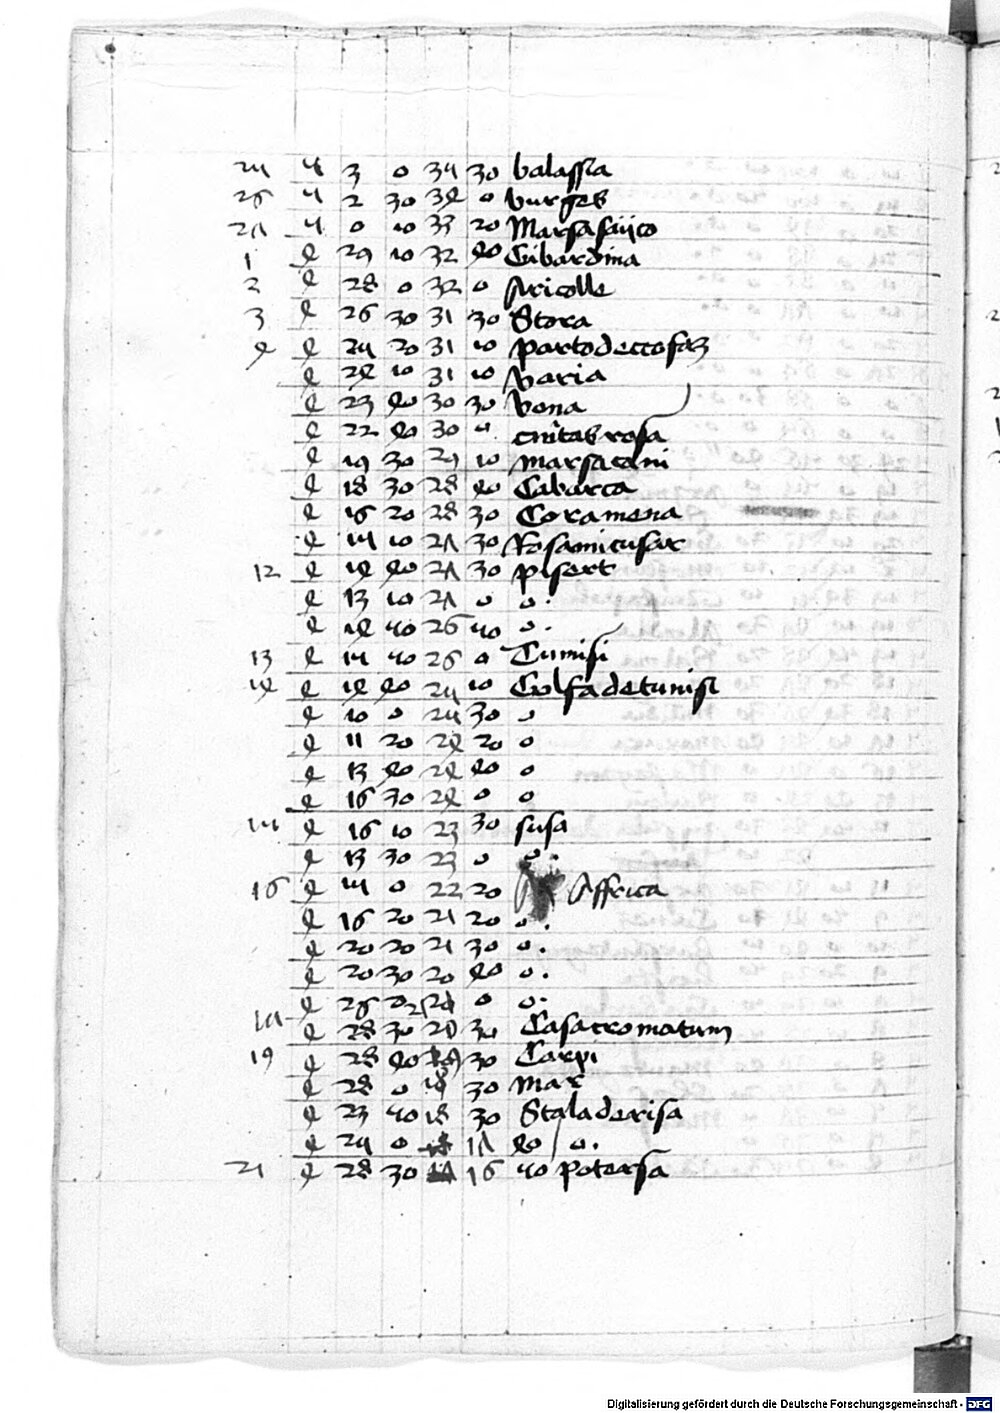 25 5 3 0 35 30 balassia
26 5 2 30 34 0 burges
27 5 0 10 33 20 Marsasaiico
1 4 29 10 32 40 Gibardina
2 4 28 0 32 0 Aricolle
3 4 26 30 31 30 Stora
4 4 25 20 31 10 portodeccosaz
4 24 10 31 10 Varia
4 23 40 30 30 bona
4 22 40 30 0
4 19 30 29 10 marsacani
4 18 30 28 40 Cabarca
4 16 20 28 30 Coramena
4 15 10 27 30 Rosamicusar
12 4 14 40 27 30 pisert
4 13 10 27 0 0.
4 14 50 26 50 0.
13 4 15 50 26 0 Tunisi
14 4 14 40 25 10 Golfadetunisi
4 10 0 25 30 0
4 11 20 24 20 0
4 13 40 24 40 0
4 16 30 24 0 0
15 4 16 10 23 30 susa
4 13 30 23 0 0.
16 4 15 0 22 20 Affrica
4 16 20 21 20 0.
4 20 20 21 30 0.
4 20 30 20 40 0.
4 26 0 0.
17 4 28 30 20 30 Casacromatum
19 4 28 40 19 30 Carpi
4 28 0 30 mar
4 23 50 18 30 Staladerisa
4 25 0 17 40 0.
21 4 28 30 16 50 potersa
Digitalisierung gefördert durch die Deutsche Forschungsgemeinschaft - DFG